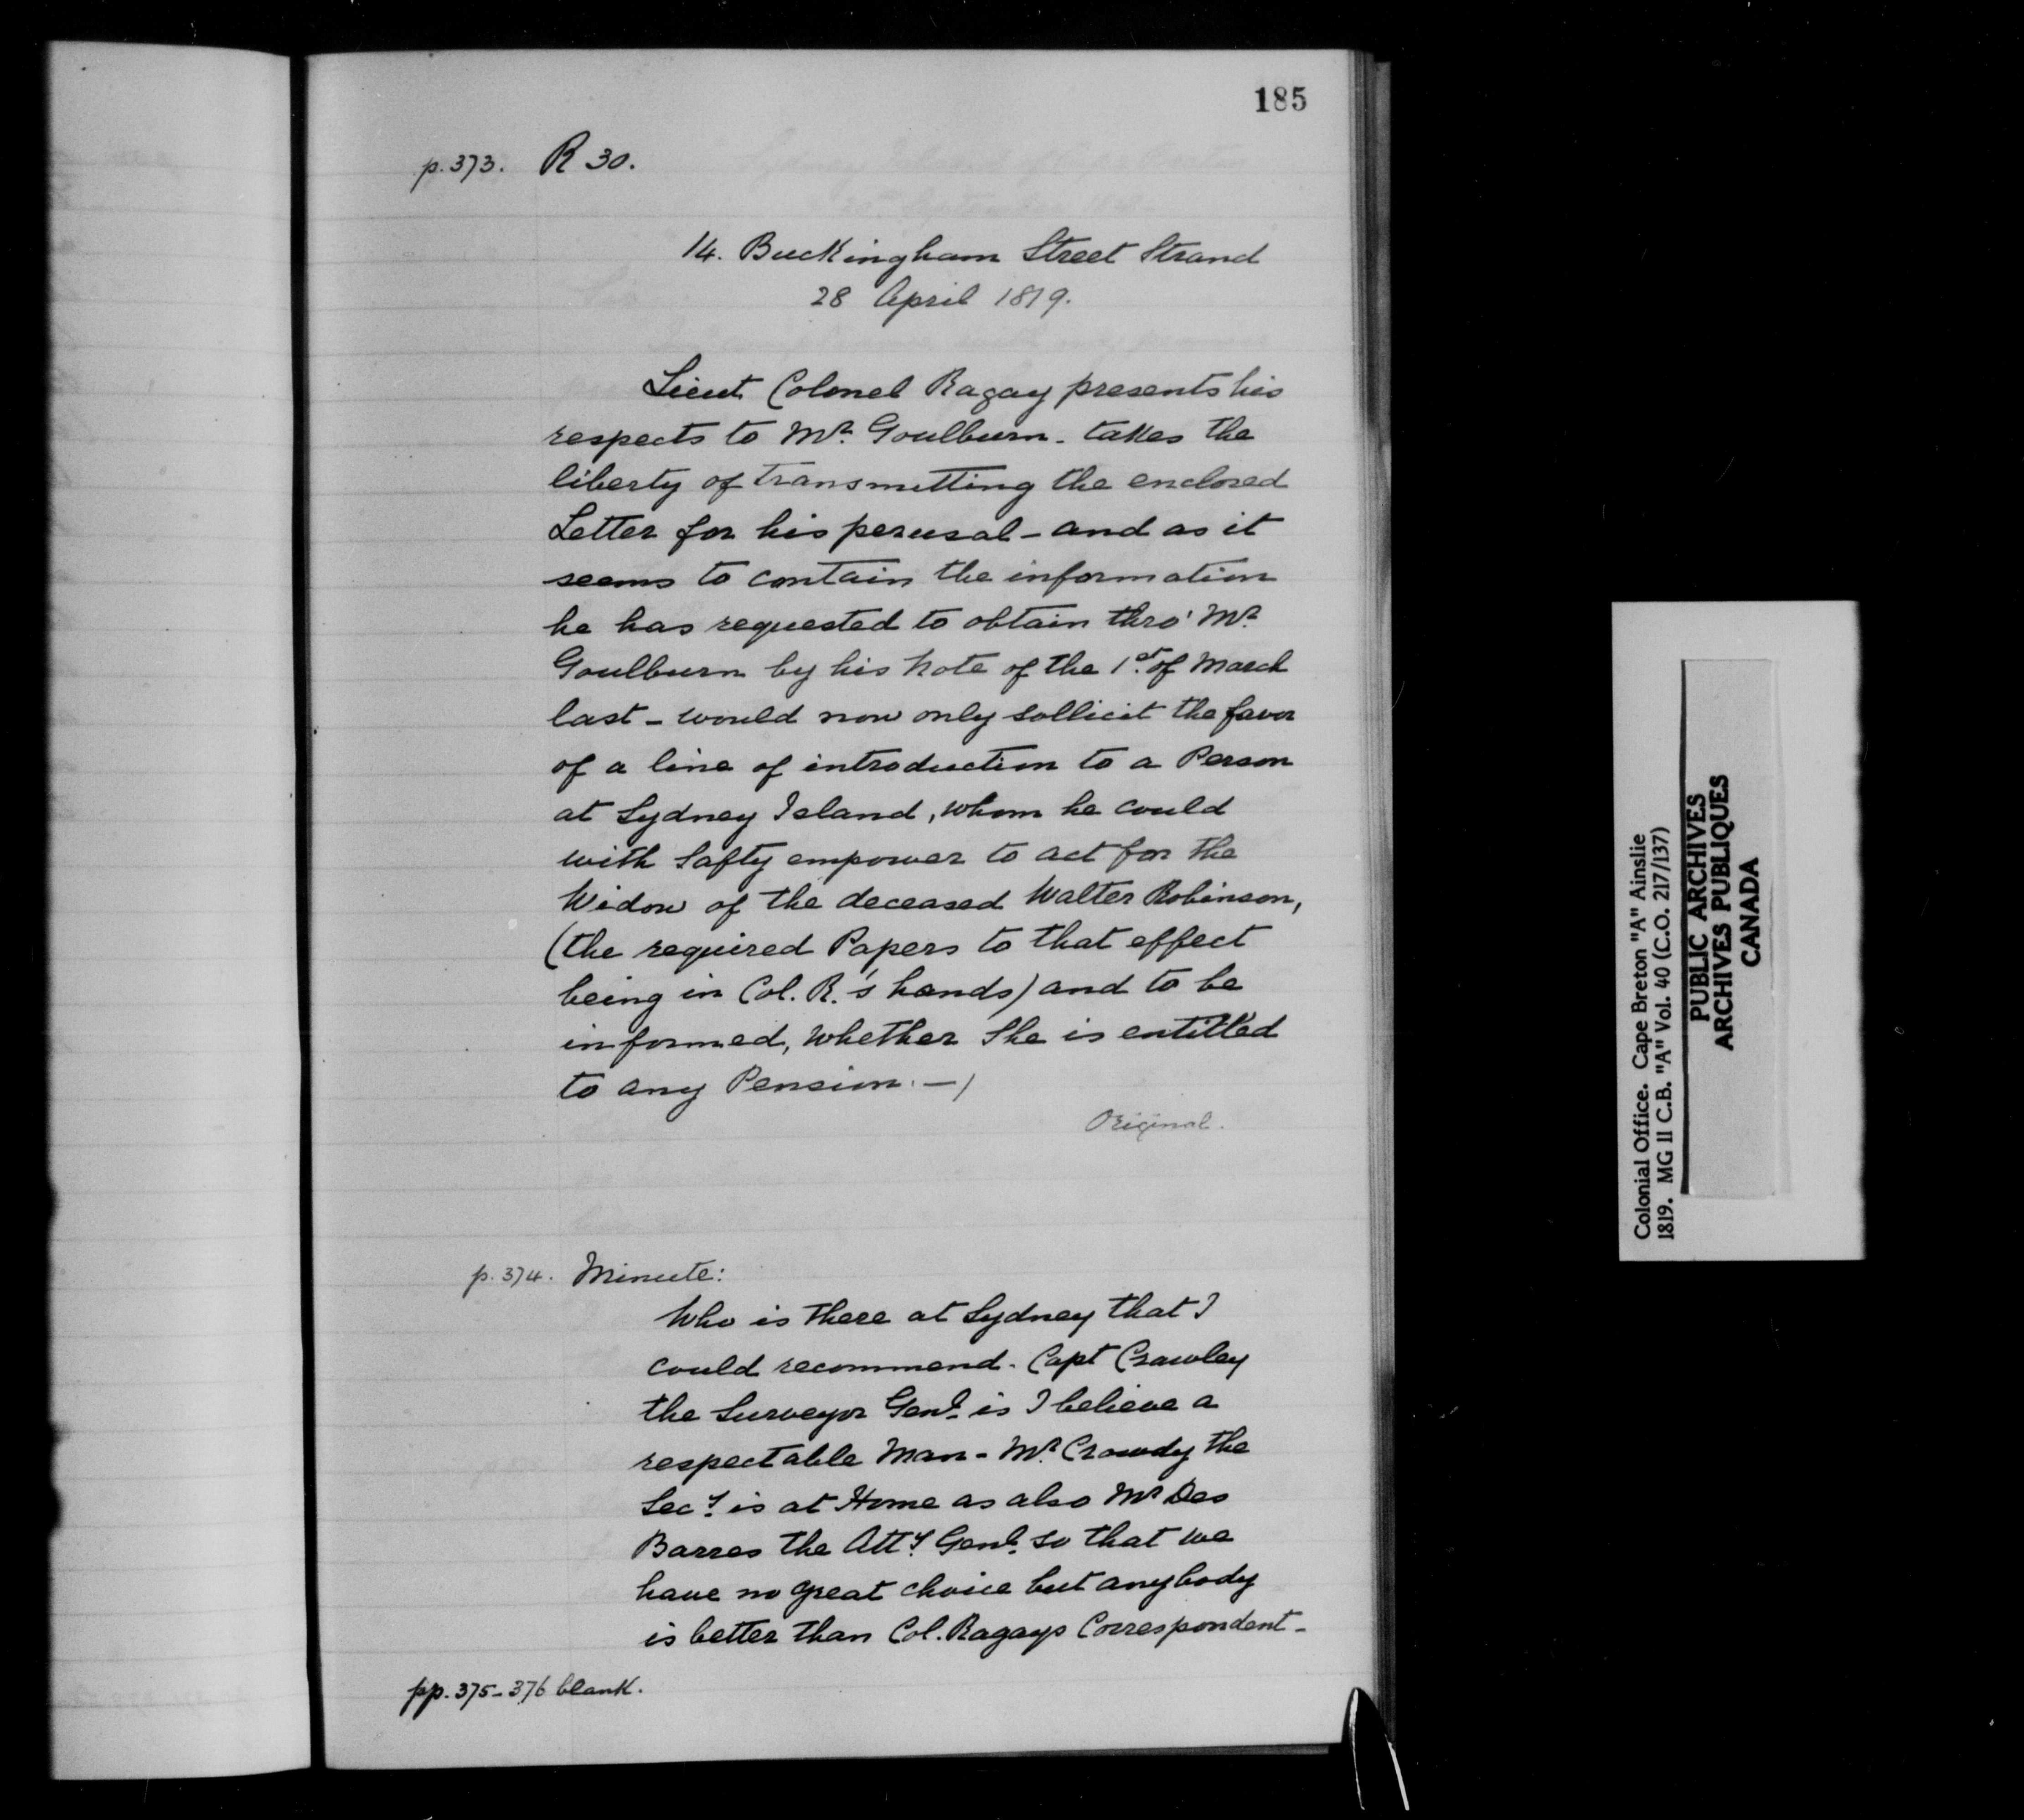 185
p.373. R 30.
14. Buckingham Street Strand
28 April 1819.
Lieut Colonel Ragay presents his
respects to Mr. Goulburn - takes the
liberty of transmitting the enclosed
Letter for his perusal - and as it
seems to contain the information
he has requested to obtain thro' Mr.
Goulburn by his Note of the 1st. of March
last - would now only sollicit the favor
of a line of introduction to a Person
at Sydney Island, whom he could
with Safty empower to act for the
Widow of the deceased Walter Robinson,
(the required Papers to that effect
being in Col. R.'s hands) and to be
informed, whether She is entitled
to any Pension. —)
Original.
p. 374. Minute:
Who is there at Sydney that I
could recommend - Capt Crawley
the Surveyor Genl. is I believe a
respectable Man - Mr. Crowdy the
Secy. is at Home as also Mr Des
Barres the Atty. Genl. so that we
have no great choice but anybody
is better than Col. Ragays Correspondent -
pp. 375-376 blank.
Colonial Office. Cape Breton "A" Ainslie
1819. MG 11 C.B. "A" Vol. 40 (C.O. 217/137)
PUBLIC ARCHIVES
ARCHIVES PUBLIQUES
CANADA